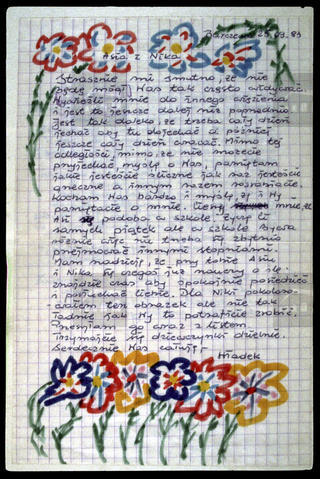 Barczewo 25.03.85
Asiu i Niko
Strasznie mi smutno, że nie
będę mógł Was tak często widywać.
Wywieźli mnie do innego więzienia
i jest to jeszcze dalej niż poprzednio.
Jest tak daleko, że trzeba cały dzień
jechać aby tu dojechać a później
jeszcze cały dzień wracać. Mimo tej
odległości, mimo, że nie możecie
przyjechać, myślę o Was, pamiętam
jakie jesteście śliczne jak raz jesteście
grzeczne a innym razem rozrabiacie.
Kocham Was bardzo i myślę, że i Wy
pamiętacie o mnie.
Asi się podoba w szkole. Życzę Ci
samych piątek ale w szkole bywa
różnie więc nie trzeba się zbytnio
przejmować innymi stopniami.
Mam nadzieję, że przy tobie Asiu
i Nika się czegoś już nauczy a nie
znajdzie czas aby spokojnie posiedzieć
i popisać literki. Dla Niki pokoloro-
wałem ten obrazek ale nie tak
ładnie jak Wy to potraficie zrobić.
Przesyłam go wraz z listem.
Trzymajcie się dziewczynki dzielnie.
Serdecznie Was całuję –
Władek